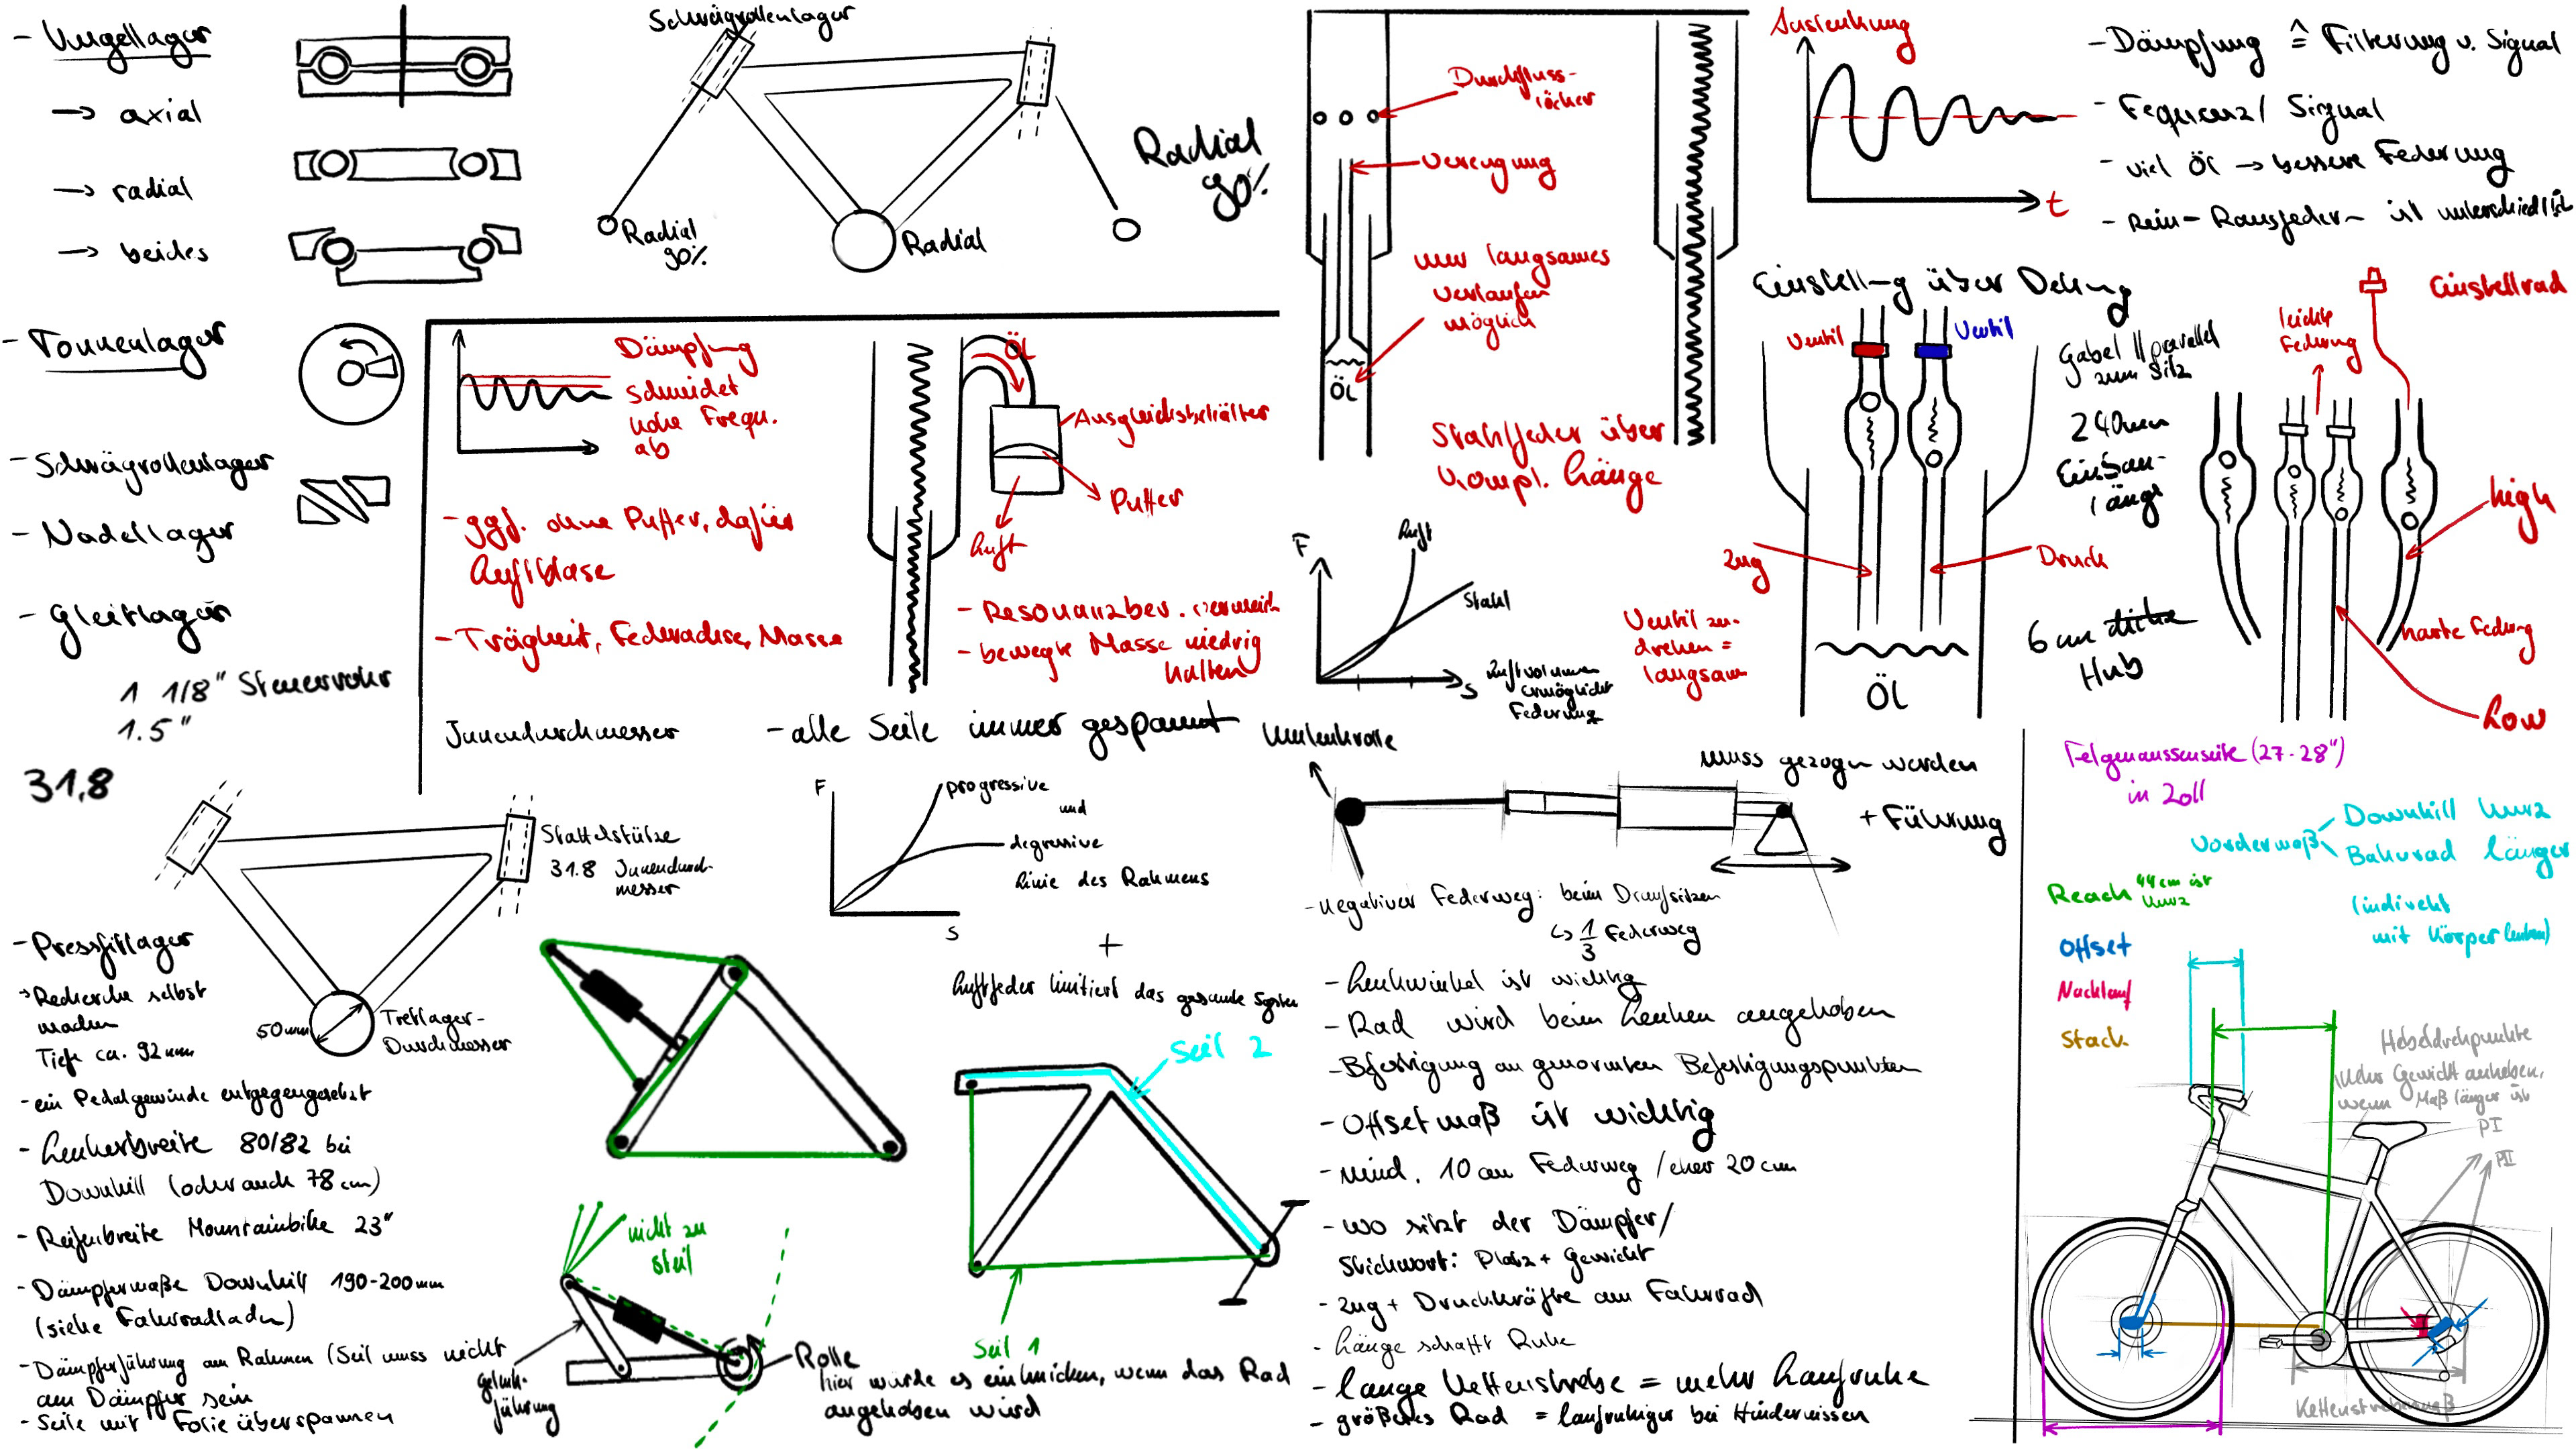 - Kugellager
→ axial
→ radial
→ beides
- Tonnenlager
- Schrägrollenlager
- Nadellager
- Gleitlager
1 1/8" Steuerrohr
1.5"
31,8
Schrägrollenlager
Radial
90%
Radial
Radial
90%
Dämpfung
schneidet
hohe Frequ.
ab
- ggf. ohne Puffer, dafür
Luftblase
- Trägheit, Federachse, Masse
Öl
Ausgleichsbehälter
Puffer
Luft
- Resonanzber. vermeid
- bewegte Masse niedrig
halten
Innendurchmesser
- alle Seile immer gespannt
Durchfluss-
löcher
Verengung
nur langsames
Verlaufen
möglich
Öl
Stahlfeder über
kompl. Länge
F
Luft
Stahl
s
Luftvolumen
ermöglicht
Federung
Auslenkung
t
- Dämpfung ≙ Filterung v. Signal
- Fequenz/ Signal
- viel Öl → bessere Federung
- Rein- Rausfedern ist unterschiedlich
Einstellung über
Ventil
Ventil
Zug
Druck
Ventil zu-
drehen =
langsam
Öl
Gabel || parallel
zum Sitz
240mm
Einbau-
länge
6 cm
Hub
leichte
Federung
Einstellrad
high
harte Federung
Low
Sattelstütze
31.8 Innendurch-
messer
50mm
Tretlager-
Durchmesser
- Pressfitlager
→ Recherche selbst
machen
Tiefe ca. 92mm
- ein Pedalgewinde entgegengesetzt
- Lenkerbreite 80/82 bei
Downhill (oder auch 78 cm)
- Reifenbreite Mountainbike 23"
- Dämpfermaße Downhill 190-200mm
(siehe Fahrradladen)
- Dämpferführung am Rahmen (Seil muss nicht
am Dämpfer sein
- Seile mit Folie überspannen
F
progressive
und
degressive
Linie des Rahmens
s
+
Luftfeder limitiert das gesamte System
Seil 2
Seil 1
nicht zu
steil
Gelenk-
führung
Rolle
hier würde es einknicken, wenn das Rad
angehoben wird
Umlenkrolle
muss gezogen werden
+ Führung
- negativer Federweg: beim Draufsitzen
↳ 1/3 Federweg
- Lenkwinkel ist wichtig
- Rad wird beim Lenken angehoben
- Befestigung an genormten Befestigungspunkten
- Offsetmaß ist wichtig
- mind. 10 cm Federweg / eher 20 cm
- wo sitzt der Dämpfer/
Stichwort: Platz + Gewicht
- Zug + Druckkräfte am Fahrrad
- Länge schafft Ruhe
- lange Kettenstrebe = mehr Laufruhe
- größeres Rad = laufruhiger bei Hindernissen
Felgenaussenseite (27-28")
in Zoll
Vordermaß
Downhill kurz
Bahnrad länger
(indirekt
mit Körper lenken)
Reach 44cm ist
kurz
Offset
Nachlauf
Stack
Hebeldrehpunkte
Mehr Gewicht anheben,
wenn Maß länger ist
PI
PII
Kettenstrebenmaß